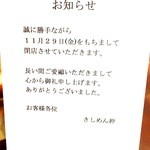 お知らせ
誠に勝手ながら
11月29日(金)をもちまして
閉店させていただきます。
長い間ご愛顧いただきまして
心から御礼申し上げます。
ありがとうございました。
お客様各位
きしめん